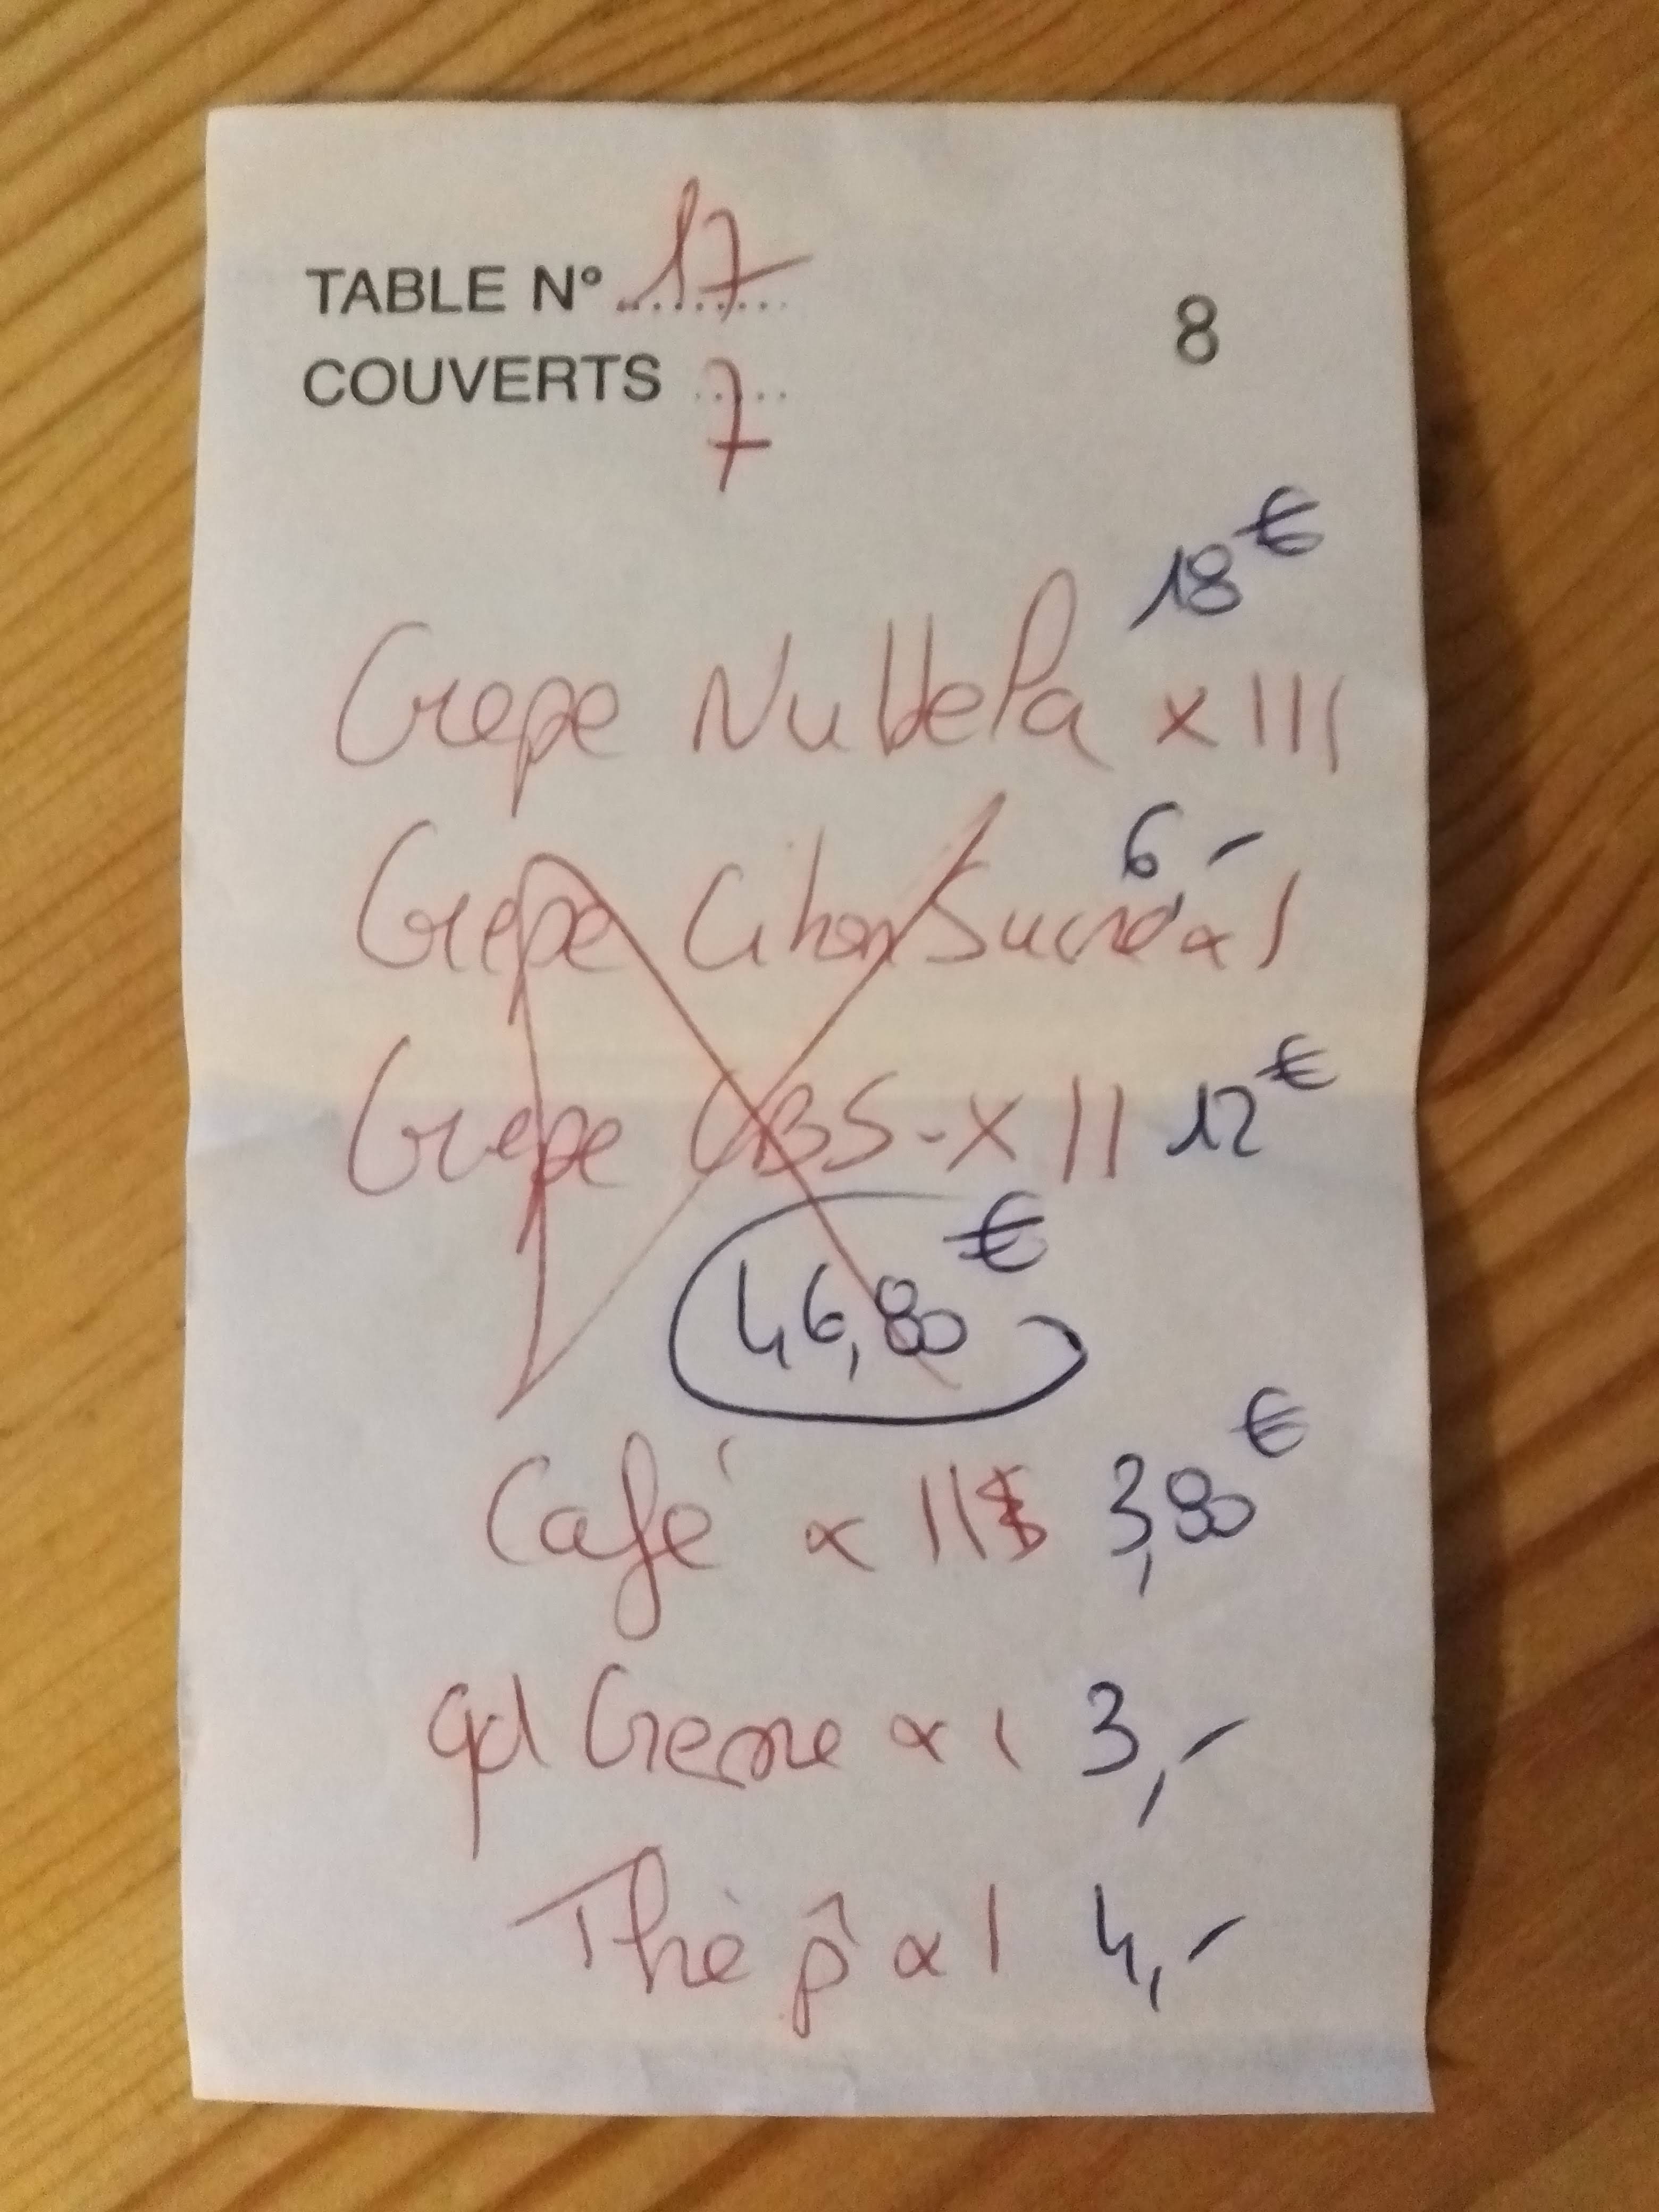 TABLE N° 17
8
COUVERTS 7
18€
Crepe Nuttella x III
6,-
Crepe Citron Sucre x I
Crepe CBS - x II 12€
46,80€
Café x II 3,80€
gd Creme x I 3,-
Thé p x I 4,-